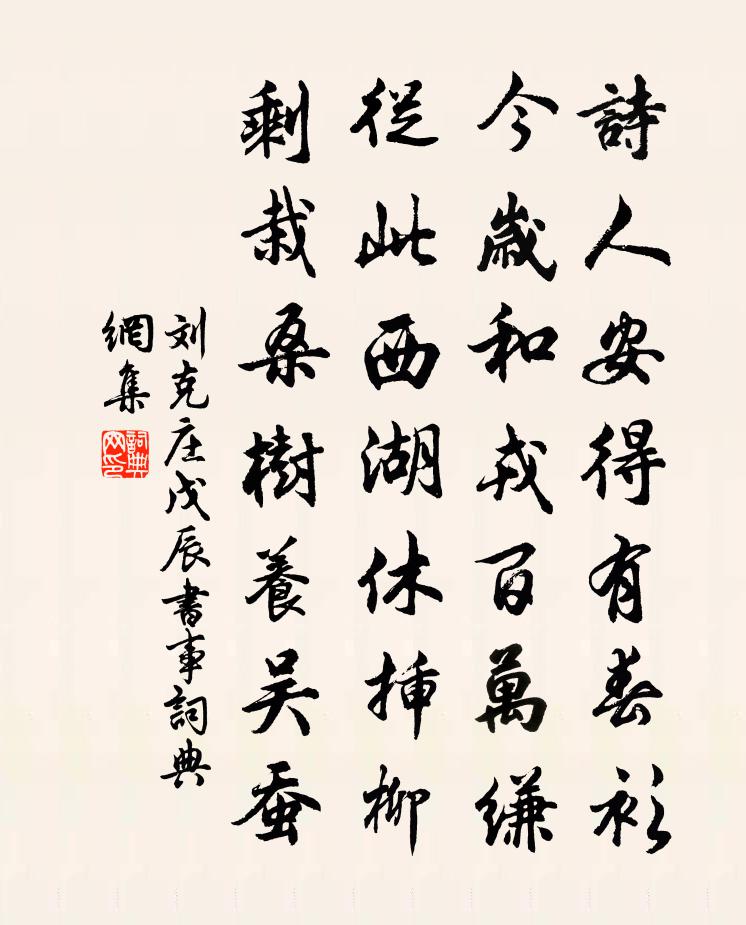 詩人安得有春衫
今歲和戎百萬縑
從此西湖休插柳
剩栽桑樹養吴蚕
刘克庄戊辰書事詞典
網集
詞典
网印